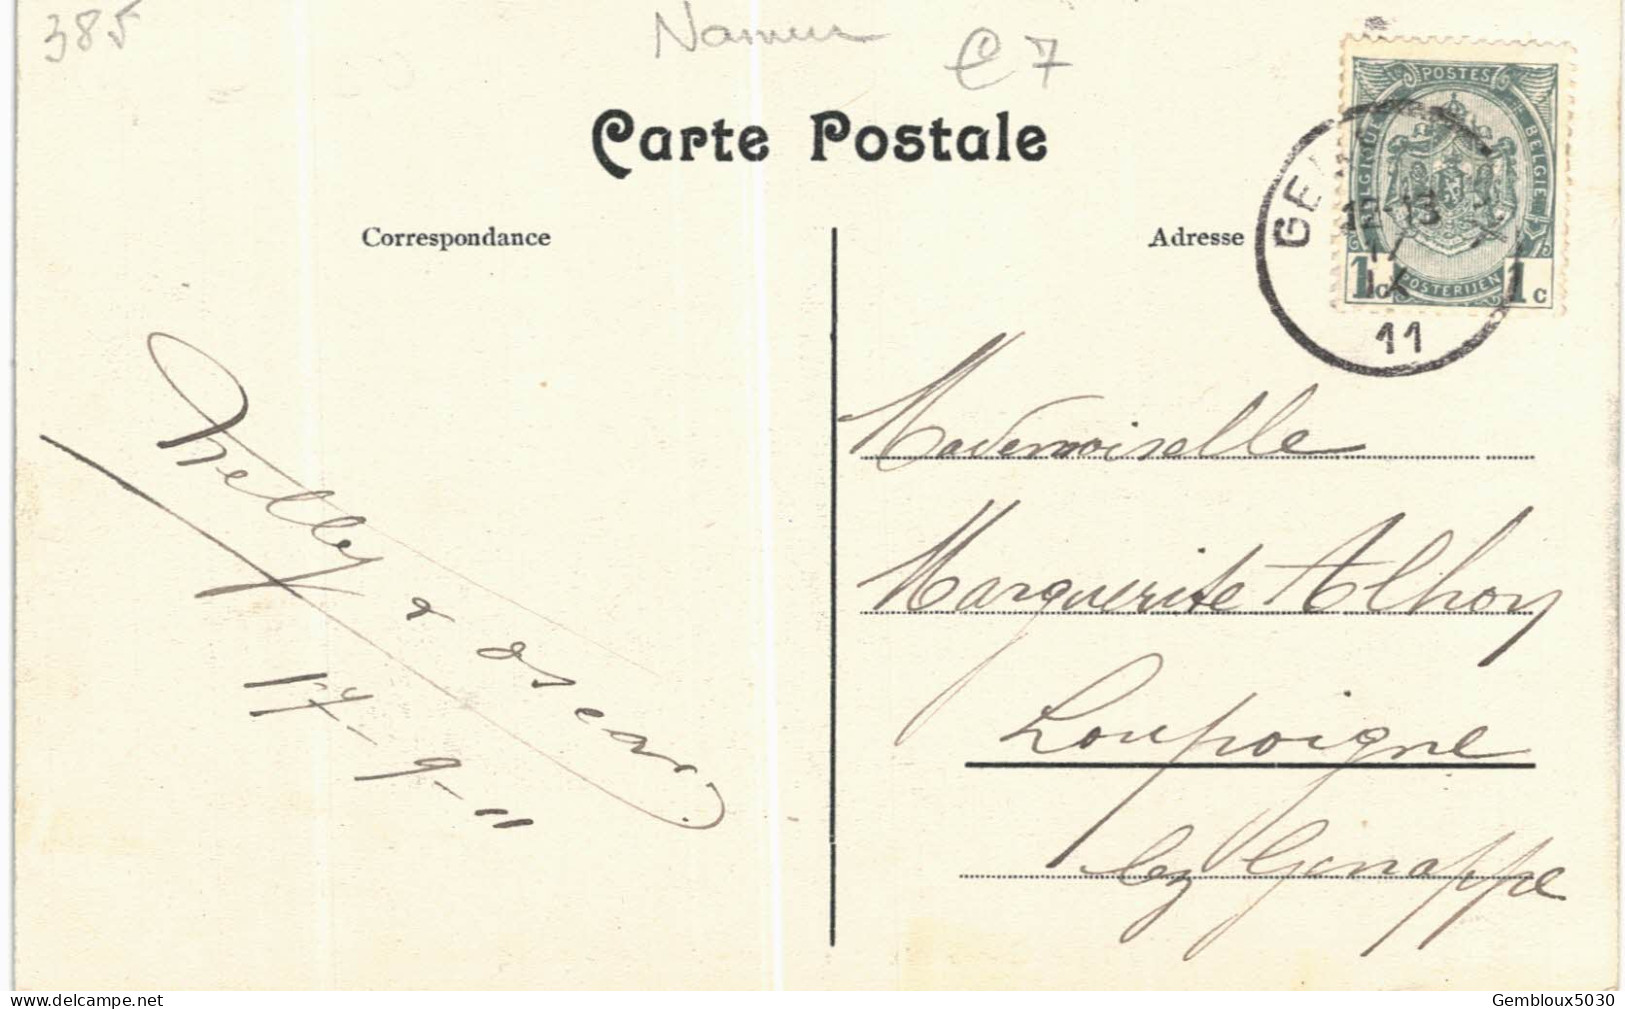 385
Namur
C 7
Carte Postale
Correspondance
Adresse
POSTES
BELGIQUE
BELGIE
POSTERIJEN
1c
1c
12-13
17
IX
11
Nelly & oscar
17-9-11
Mademoiselle
Marguerite Alhoy
Loupoigne
lez Genappe
www.delcampe.net
Gembloux5030